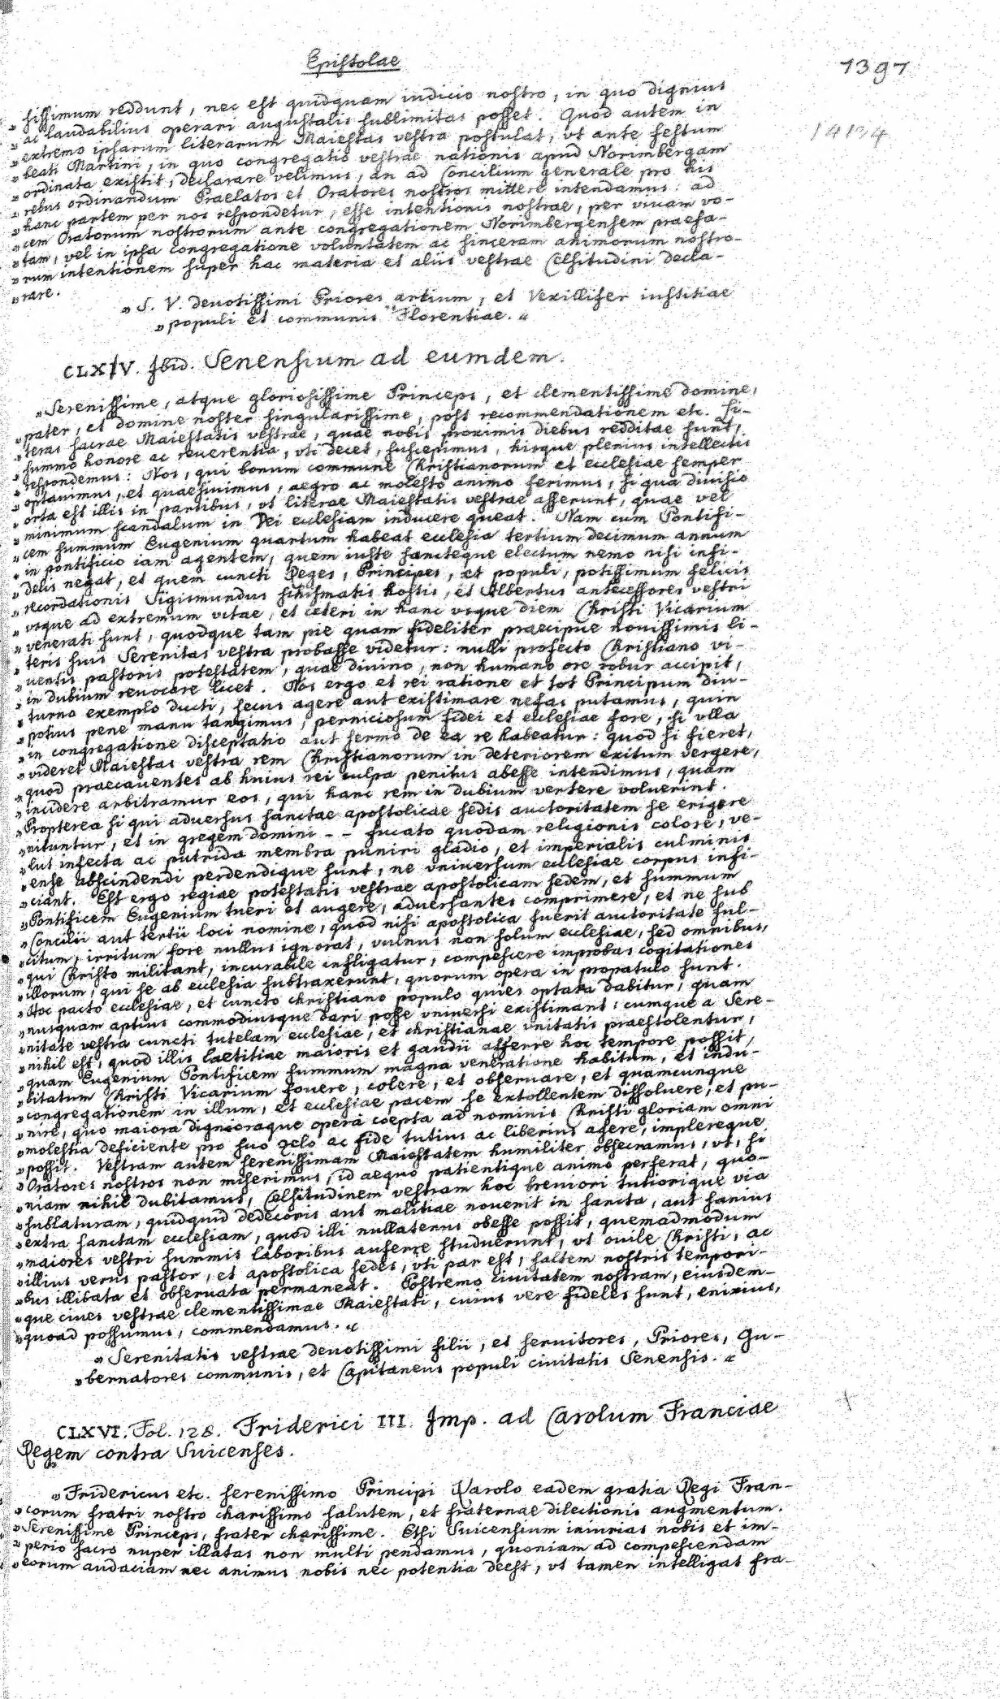 Epistolae
1397
14134
„ sissimum reddunt, nec est quidquam iudicio nostro, in quo dignius
„ ac laudabilius operari augustalis sublimitas posset. Quod autem in
„ extremo ipsarum literarum Maiestas vestra postulat, vt ante festum
„ beati Martini, in quo congregatio vestrae nationis apud Norimbergam
„ ordinata existit, declarare velimus, an ad Concilium generale pro his
„ rebus ordinandum Praelatos et Oratores nostros mittere intendamus: ad
„ hanc partem per nos respondetur, esse intentionis nostrae, per viuam vo-
„ cem Oratorum nostrorum ante congregationem Norimbergensem praefa-
„ tam, vel in ipsa congregatione voluntatem ac sinceram animorum nostro-
„ rum intentionem super hac materia et aliis vestrae Celsitudini decla-
„ rare.
„ S. V. deuotissimi Priores artium, et Vexillifer iustitiae
„ populi et communis Florentiae. “
CLXIV. Ibid. Senensium ad eumdem.
„ Serenissime, atque gloriosissime Princeps, et clementissime domine,
„ pater, et domine noster singularissime, post recommendationem etc. Li-
„ teras sacrae Maiestatis vestrae, quae nobis proximis diebus redditae sunt,
„ summo honore ac reuerentia, vti decet, suscepimus, hisque plenius intellectis
„ respondemus: Nos, qui bonum commune Christianorum et ecclesiae semper
„ optauimus, et quaesiuimus, aegro ac molesto animo ferimus, si qua diuisio
„ orta est illis in partibus, vt literae Maiestatis vestrae asserunt, quae vel
„ minimum scandalum in Dei ecclesiam inducere queat. Nam cum Pontifi-
„ cem summum Eugenium quartum habeat ecclesia tertium decimum annum
„ in pontificio iam agentem, quem iuste sancteque electum nemo nisi infi-
„ delis negat, et quem cuncti Reges, Principes, et populi, potissimum felicis
„ recordationis Sigismundus schismatis hostis, et Albertus antecessores vestri
„ vsque ad extremum vitae, et ceteri in hanc vsque diem Christi Vicarium
„ venerati sunt, quodque tam pie quam fideliter praecipue nouissimis li-
„ teris suis Serenitas vestra probasse videtur: nulli profecto Christiano vi-
„ uentis pastoris potestatem, quae diuino, non humano ore robur accipit,
„ in dubium reuocare licet. Nos ergo et rei ratione et tot Principum diu-
„ turno exemplo ducti, secus agere aut existimare nefas putamus, quin
„ potius pene manu tangimus, perniciosum fidei et ecclesiae fore, si vlla
„ in congregatione disceptatio aut sermo de ea re habeatur: quod si fieret,
„ videret Maiestas vestra rem Christianorum in deteriorem exitum vergere,
„ quod praecauentes ab huius rei culpa penitus abesse intendimus, quam
„ incidere arbitramur eos, qui hanc rem in dubium vertere voluerint.
„ Propterea si qui aduersus sanctae apostolicae sedis auctoritatem se erigere
„ nituntur, et in gregem domini - - fucato quodam religionis colore, ve-
„ lut infecta ac putrida membra puniri gladio, et imperialis culminis
„ ense abscindendi perdendique sunt, ne vniuersum ecclesiae corpus infi-
„ ciant. Est ergo regiae potestatis vestrae apostolicam sedem, et summum
„ Pontificem Eugenium tueri et augere, aduersantes comprimere, et ne sub
„ Concilii aut tertii loci nomine, quod nisi apostolica fuerit auctoritate ful-
„ citum, irritum fore nullus ignorat, vulnus non solum ecclesiae, sed omnibus,
„ qui Christo militant, incurabile infligatur, compescere improbas cogitationes
„ illorum, qui se ab ecclesia subtraxerunt, quorum opera in propatulo sunt.
„ Hoc pacto ecclesiae, et cuncto christiano populo quies optata dabitur, quam
„ nusquam aptius commodiusque dari posse vniuersi existimant: cumque a Sere-
„ nitate vestra cuncti tutelam ecclesiae, et christianae vnitatis praestolentur,
„ nihil est, quod illis laetitiae maioris et gaudii afferre hoc tempore possit,
„ quam Eugenium Pontificem summum magna veneratione habitum, et indu-
„ bitatum Christi Vicarium fouere, colere, et obseruare, et quamcunque
„ congregationem in illum, et ecclesiae pacem se extollentem dissoluere, et pu-
„ nire, quo maiora dignioraque opera coepta ad nominis Christi gloriam omni
„ molestia deficiente pro suo zelo ac fide tutius ac liberius agere, implereque
„ possit. Vestram autem serenissimam Maiestatem humiliter obsecramus, vt, si
„ Oratores nostros non miserimus, id aequo patientique animo perferat, quo-
„ niam nihil dubitamus, Celsitudinem vestram hoc breuiori tutiorique via
„ sublaturam, quidquid dedecoris aut malitiae nouerit in sancta, aut
„ extra sanctam ecclesiam, quod illi nullatenus obesse possit, quemadmodum
„ maiores vestri summis laboribus auferre studuerunt, vt ouile Christi, ac
„ illius verus pastor, et apostolica sedes, vti par est, saltem nostris tempori-
„ bus illibata et obseruata permaneat. Postremo ciuitatem nostram, eiusdem-
„ que ciues vestrae clementissimae Maiestati, cuius vere fideles sunt, enixius,
„ quoad possumus, commendamus. “
„ Serenitatis vestrae deuotissimi filii, et seruitores, Priores, Gu-
„ bernatores communis, et Capitaneus populi ciuitatis Senensis. “
CLXVI. Fol. 128. Friderici III. Imp. ad Carolum Franciae
Regem contra Suicenses.
„ Fridericus etc. serenissimo Principi Carolo eadem gratia Regi Fran-
„ corum fratri nostro charissimo salutem, et fraternae dilectionis augmentum.
„ Serenissime Princeps, frater charissime. Etsi Suicensium iniurias nobis et im-
„ perio sacro nuper illatas non multi pendamus, quoniam ad compescendam
„ eorum audaciam nec animus nobis nec potentia deest, vt tamen intelligat fra-